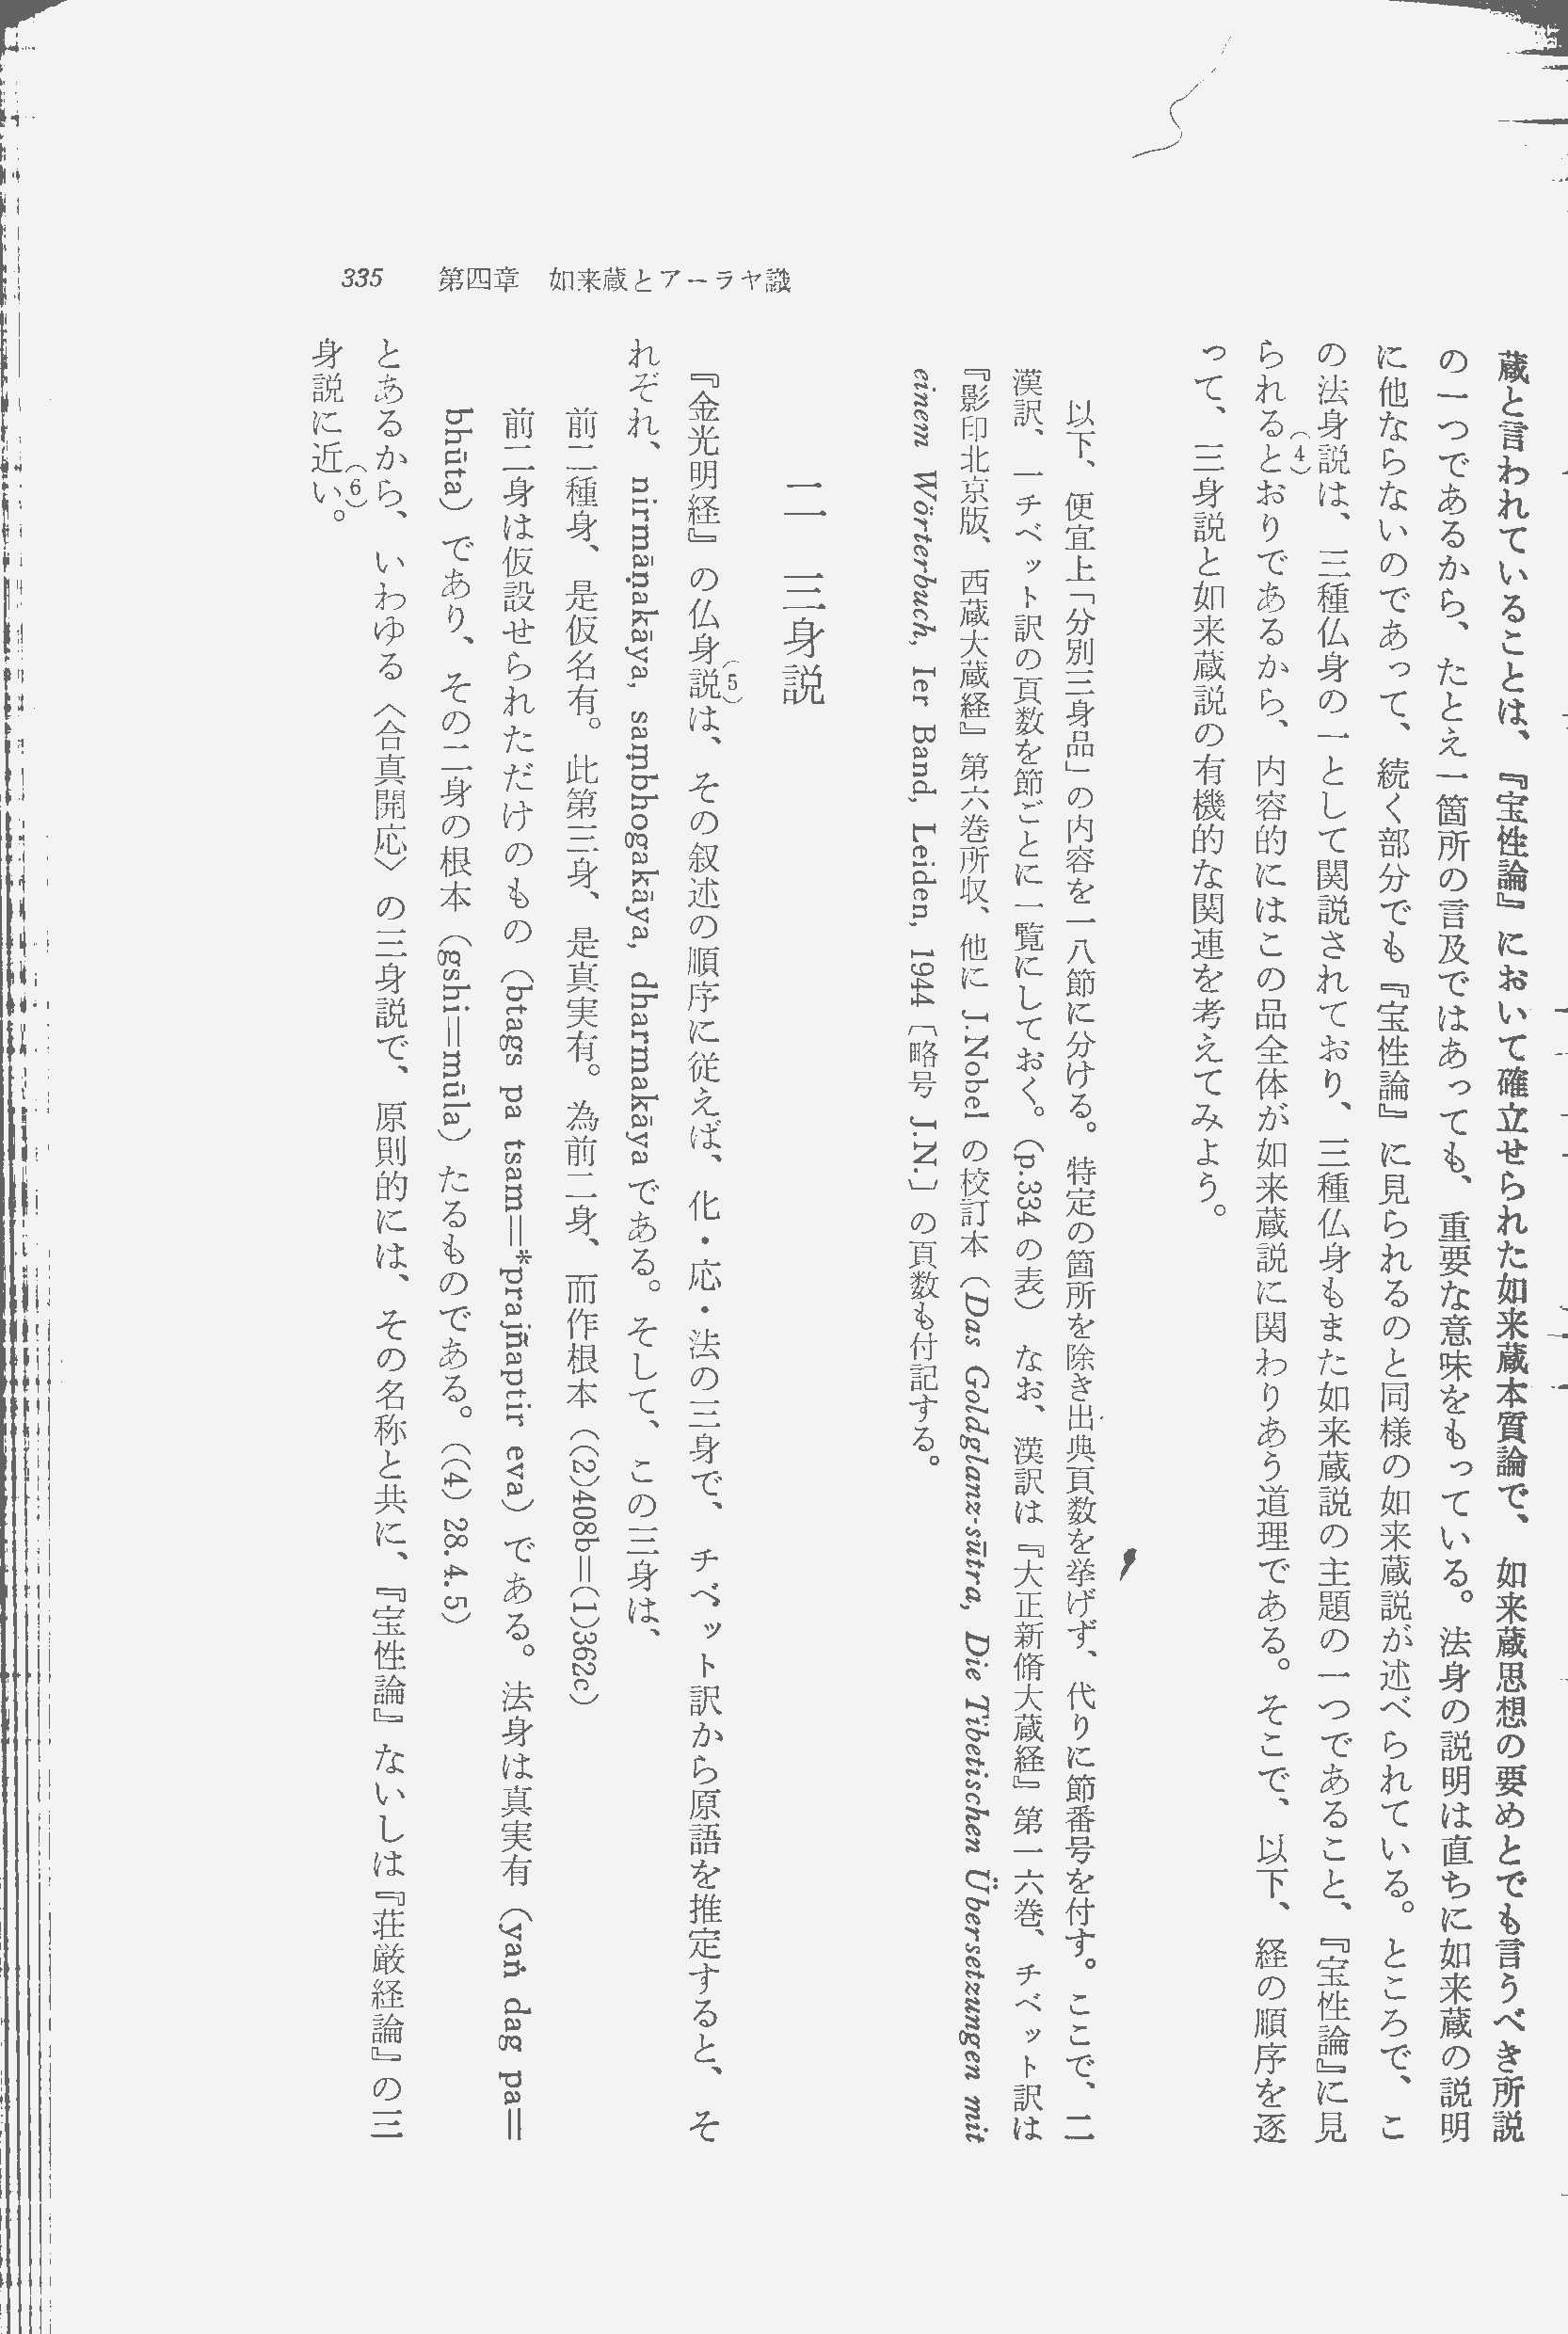 蔵と言われていることは、『宝性論』において確立せられた如来蔵本質論で、如来蔵思想の要めとでも言うべき所説
の一つであるから、たとえ一箇所の言及ではあっても、重要な意味をもっている。法身の説明は直ちに如来蔵の説明
に他ならないのであって、続く部分でも『宝性論』に見られるのと同様の如来蔵説が述べられている。ところで、こ
の法身説は、三種仏身の一として関説されており、三種仏身もまた如来蔵説の主題の一つであること、『宝性論』に見
られる(4)とおりであるから、内容的にはこの品全体が如来蔵説に関わりあう道理である。そこで、以下、経の順序を逐
って、三身説と如来蔵説の有機的な関連を考えてみよう。
以下、便宜上「分別三身品」の内容を一八節に分ける。特定の箇所を除き出典頁数を挙げず、代りに節番号を付す。ここで、二
漢訳、一チベット訳の頁数を節ごとに一覧にしておく。(p.334 の表) なお、漢訳は『大正新脩大蔵経』第一六巻、チベット訳は
『影印北京版、西蔵大蔵経』第六巻所収、他に J.Nobel の校訂本 (Das Goldglanz-sūtra, Die Tibetischen Übersetzungen mit
einem Wörterbuch, Ier Band, Leiden, 1944〔略号 J.N.〕の頁数も付記する。
二 三身説
『金光明経』の仏身説(5)は、その叙述の順序に従えば、化・応・法の三身で、チベット訳から原語を推定すると、そ
れぞれ、nirmāṇakāya, saṃbhogakāya, dharmakāya である。そして、この三身は、
前二種身、是仮名有。此第三身、是真実有。為前二身、而作根本 ((2)408b=(1)362c)
前二身は仮設せられただけのもの (btags pa tsam=*prajñaptir eva) である。法身は真実有 (yaṅ dag pa=
bhūta) であり、その二身の根本 (gshi=mūla) たるものである。((4) 28.4.5)
とあるから、いわゆる〈合真開応〉の三身説で、原則的には、その名称と共に、『宝性論』ないしは『荘厳経論』の三
身説に近い(6)。
335 第四章 如来蔵とアーラヤ識